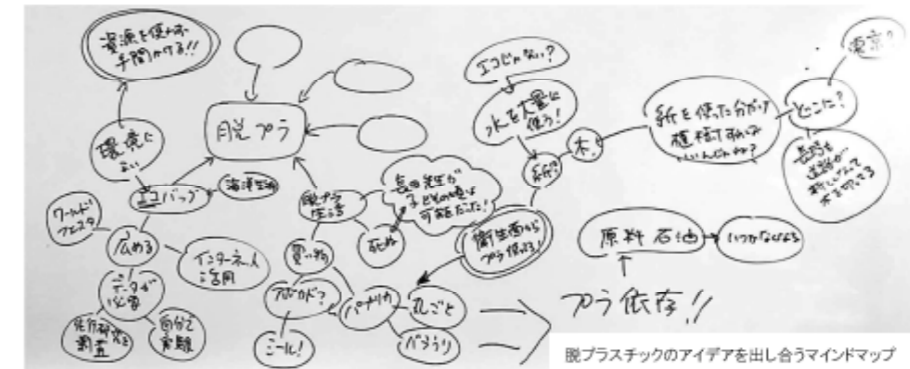 資源を使わず
手間かける!!
脱プラ
環境に
よい
エコバッグ
海洋生物
ワールド
フェスタ
広める
インターネット
活用
データが
必要
先行研究を
調査
自分で
実験
脱プラ
生活
長田先生が
子どもの頃は
可能だった!
死ぬ
買い物
アボカド?
シール!
パプリカ
丸ごと
バラうり
衛生面から
プラ使ってる!
エコじゃない?
水を大量に
使う!
紙?
木!
紙を使った分だけ
植樹すれば
いいんじゃね?
どこに?
東京?
長野も
道路が
木を切ってる
原料 石油
いつかなくなる
プラ依存!!
脱プラスチックのアイデアを出し合うマインドマップ